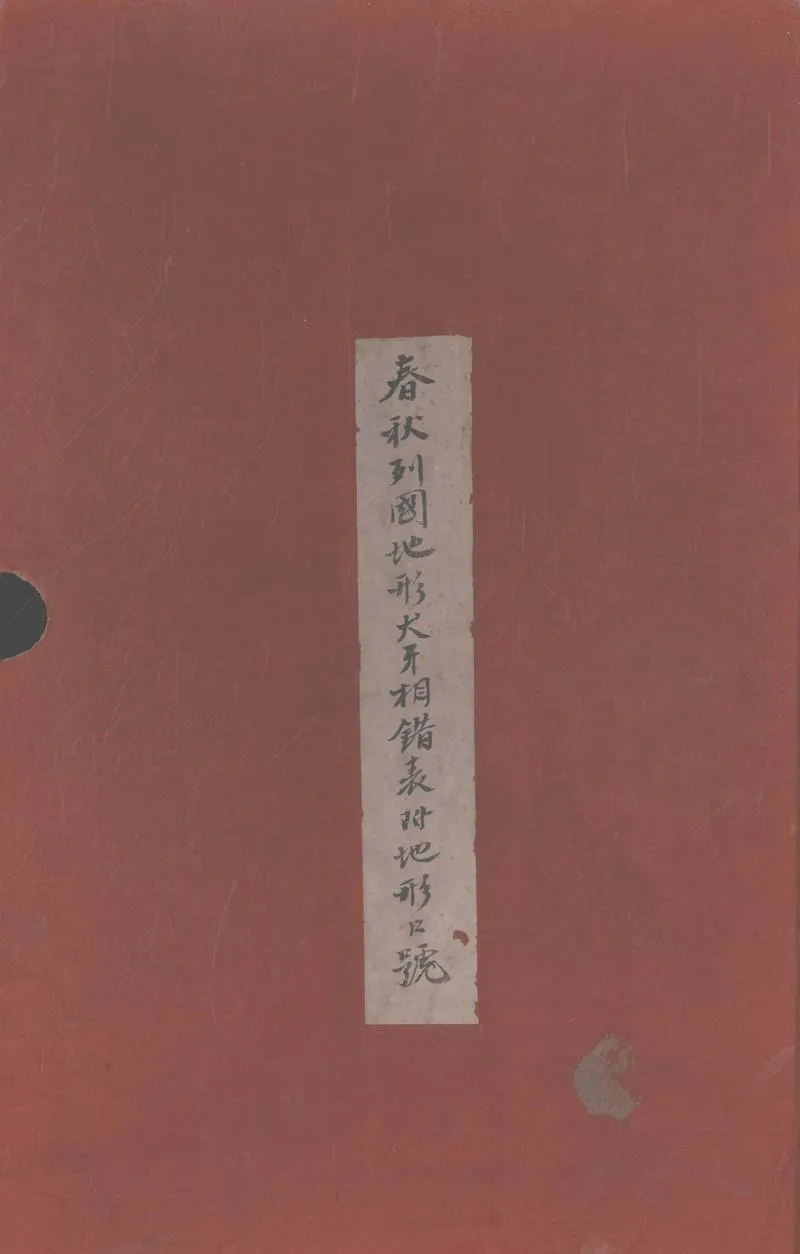 春秋列國地形犬牙相錯表附地形口號